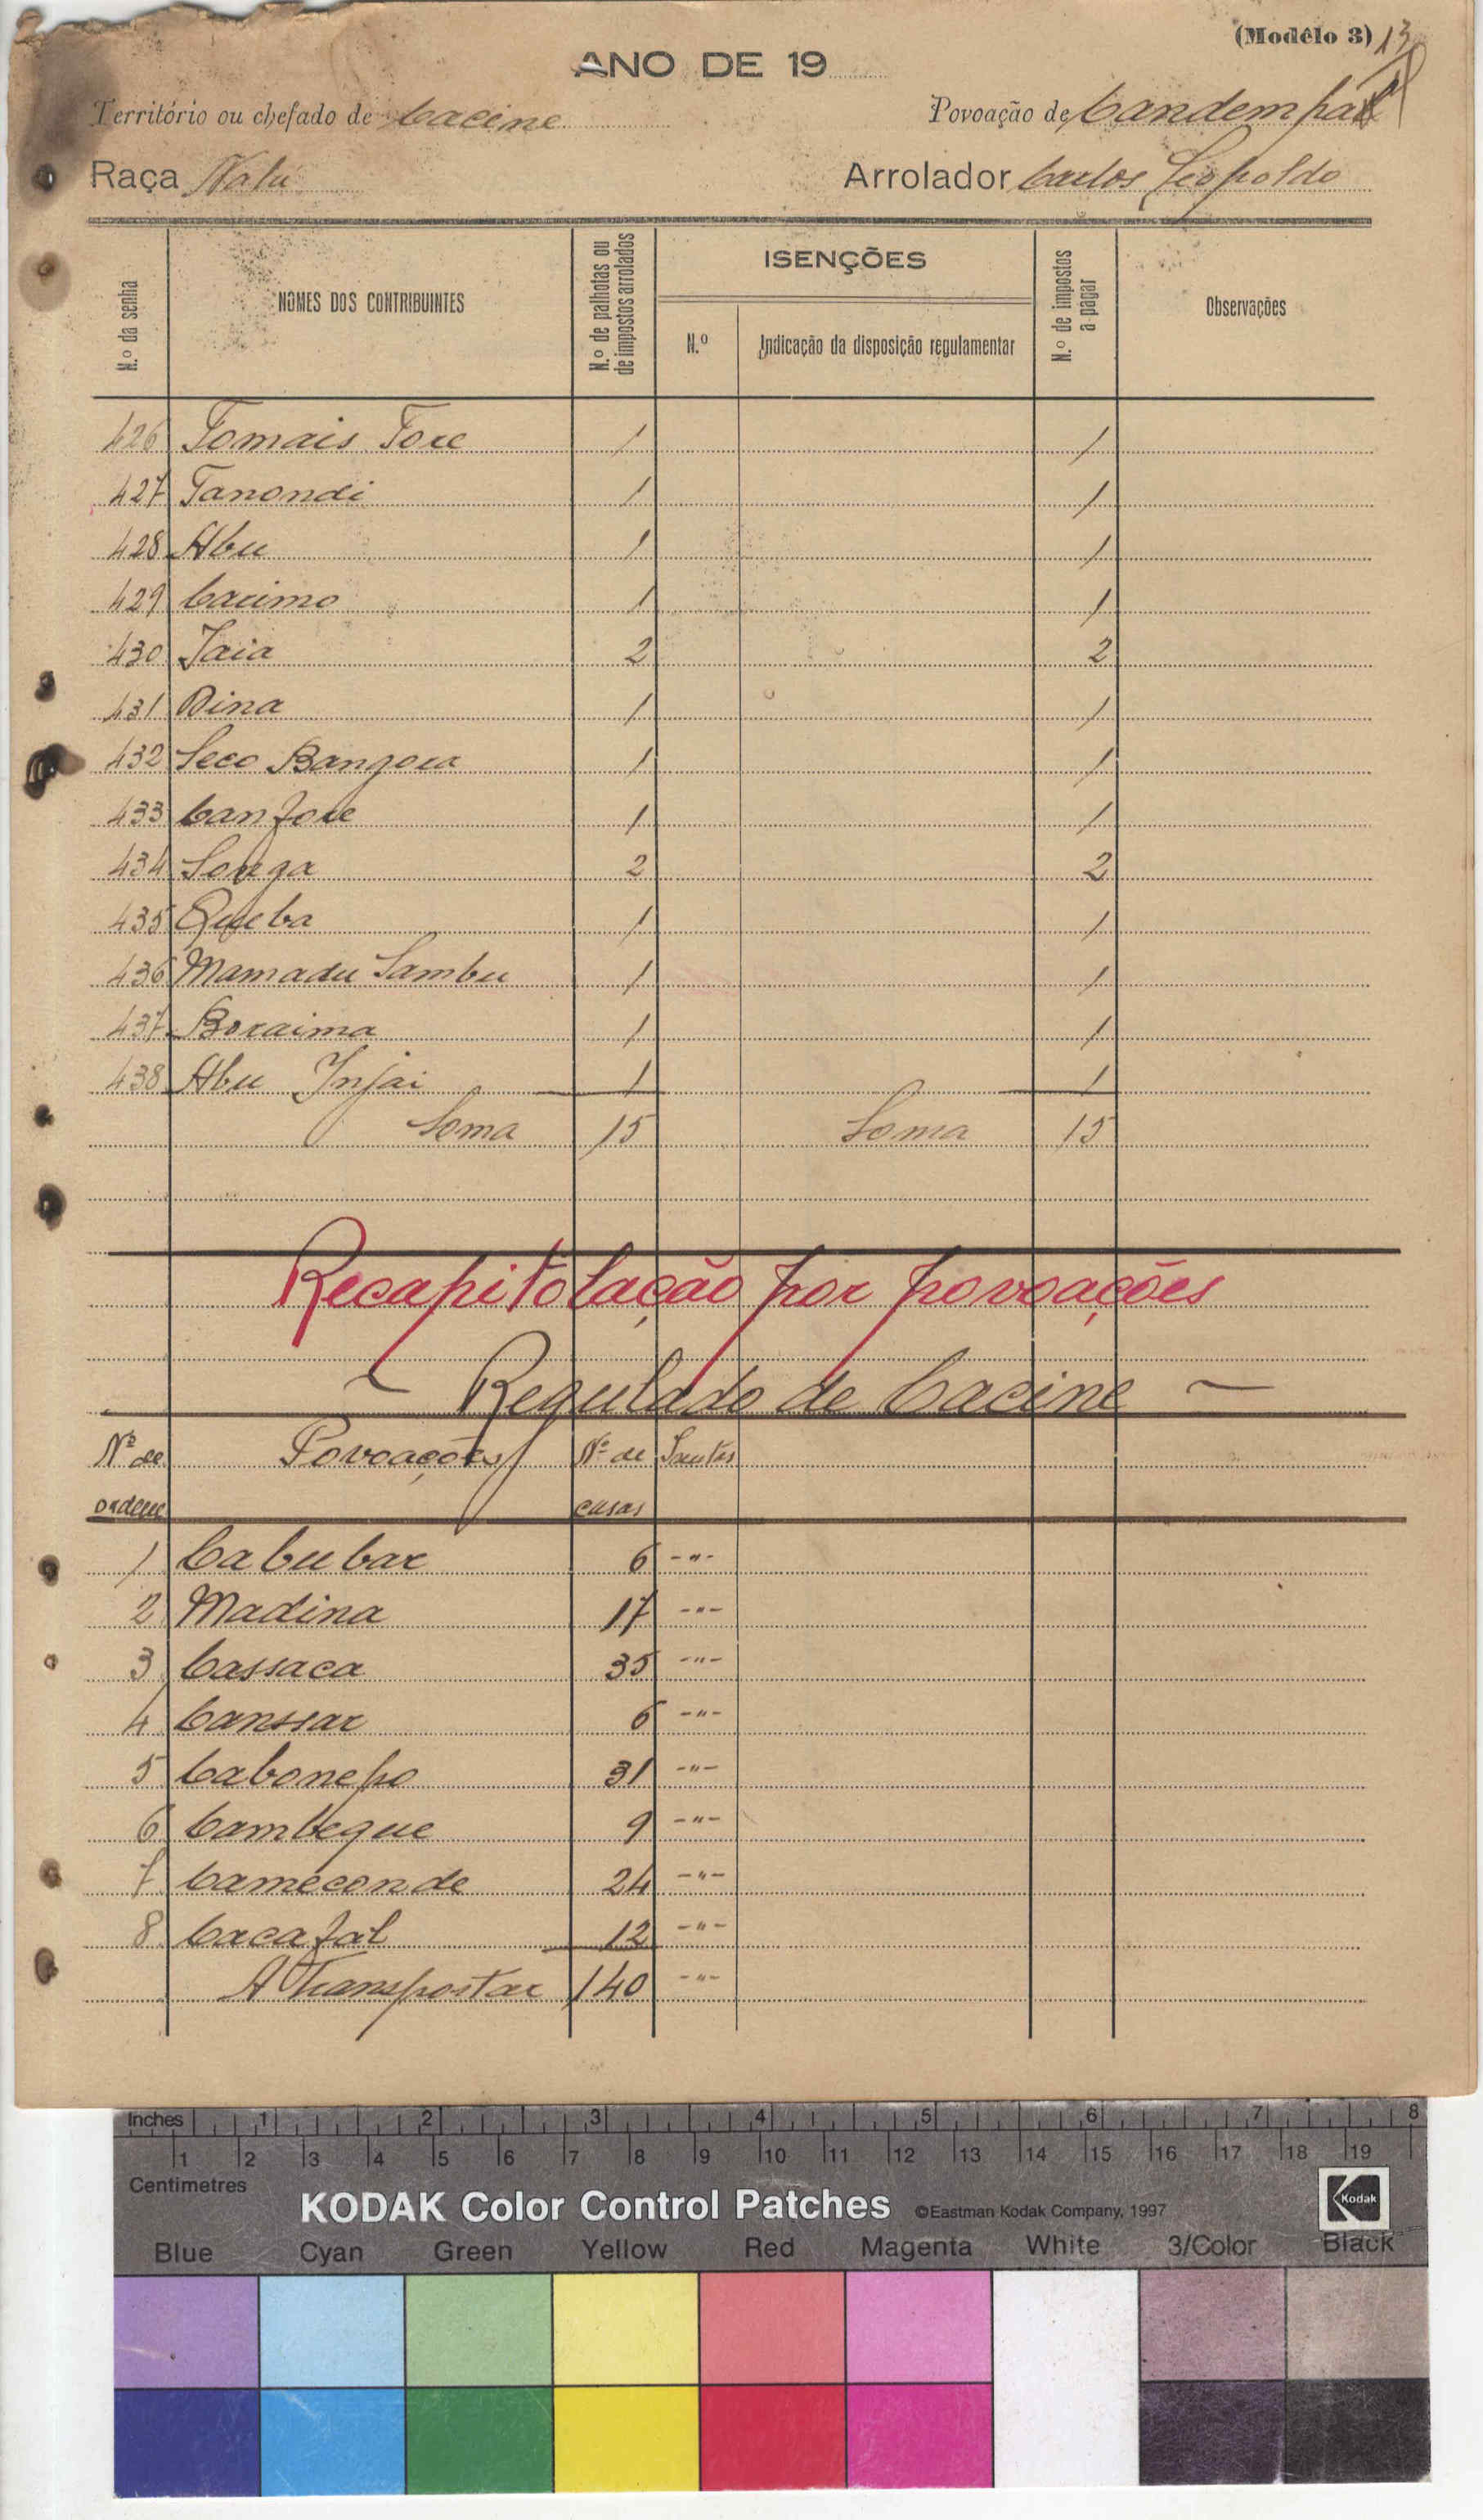 (Modêlo 3) 13
ANO DE 19
Território ou chefado de Cacine Povoação de Candempal
Raça Nalú Arrolador Carlos Leopoldo
N.º da senha
NOMES DOS CONTRIBUINTES
N.º de palhotas ou de impostos arrolados
ISENÇÕES
N.º
Indicação da disposição regulamentar
N.º de impostos a pagar
Observações
426 Tomais Tore 1 1
427 Tanondi 1 1
428 Abu 1 1
429 Carimo 1 1
430 Jaia 2 2
431 Dina 1 1
432 Seco Bangora 1 1
433 Canfore 1 1
434 Songa 2 2
435 Queba 1 1
436 Mamadu Sambu 1 1
437 Boraima 1 1
438 Abu Injai 1 1
Soma 15 Soma 15
Recapitolação por povoações
~ Regulado de Cacine ~
Nº de Povoações Nº de
ordem casas
1 Cabubar 6 -"-
2 Madina 17 -"-
3 Cassaca 35 -"-
4 Canssar 6 -"-
5 Cabonepo 31 -"-
6 Cambeque 9 -"-
7 Cameconde 24 -"-
8 Cacafal 12 -"-
A Transportar 140 -"-
Inches 1 2 3 4 5 6 7 8
1 2 3 4 5 6 7 8 9 10 11 12 13 14 15 16 17 18 19
Centimetres
KODAK Color Control Patches ©Eastman Kodak Company, 1997 Kodak
Blue Cyan Green Yellow Red Magenta White 3/Color Black